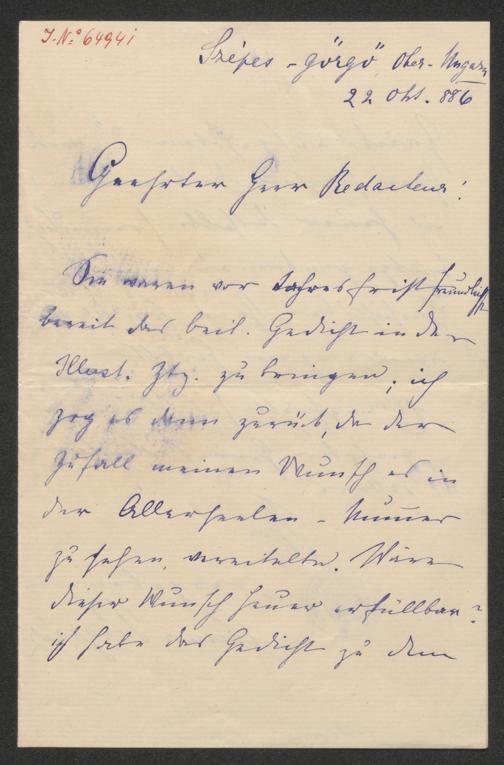 J.-N.º 64941
Szépes-görgö, Ober-Ungarn
22 Okt. 886
Geehrter Herr Redacteur!
Sie waren vor Jahresfrist freundlichst
bereit das beil. Gedicht in der
Illust. Ztg. zu bringen; ich
zog es dann zurück, da der
Zufall meinen Wunsch es in
der Allerseelen-Numer
zu sehen, vereitelte. Wäre
dieser Wunsch heuer erfüllbar?
ich habe das Gedicht zu dem